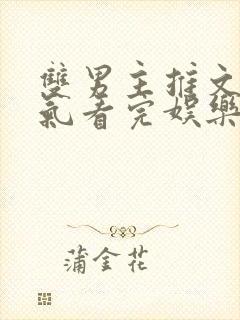 雙男主推文
氣看完娛樂
蒲金花